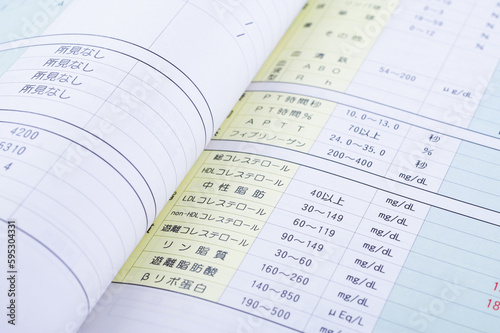 所見なし
所見なし
所見なし
所見なし
4200
5310
4
球
その他
0~9 %
血清鉄 54~200 μg/dL
ABO
Rh
PT時間秒 10.0~13.0 秒
PT時間% 70以上 %
APTT 24.0~35.0 秒
フィブリノーゲン 200~400 mg/dL
総コレステロール
HDLコレステロール 40以上 mg/dL
中性脂肪 30~149 mg/dL
LDLコレステロール 60~119 mg/dL
non-HDLコレステロール 90~149 mg/dL
遊離コレステロール 30~60 mg/dL
リン脂質 160~260 mg/dL
遊離脂肪酸 140~850 μEq/L
βリポ蛋白 190~500 mg/dL
18
Adobe Stock | #595304331